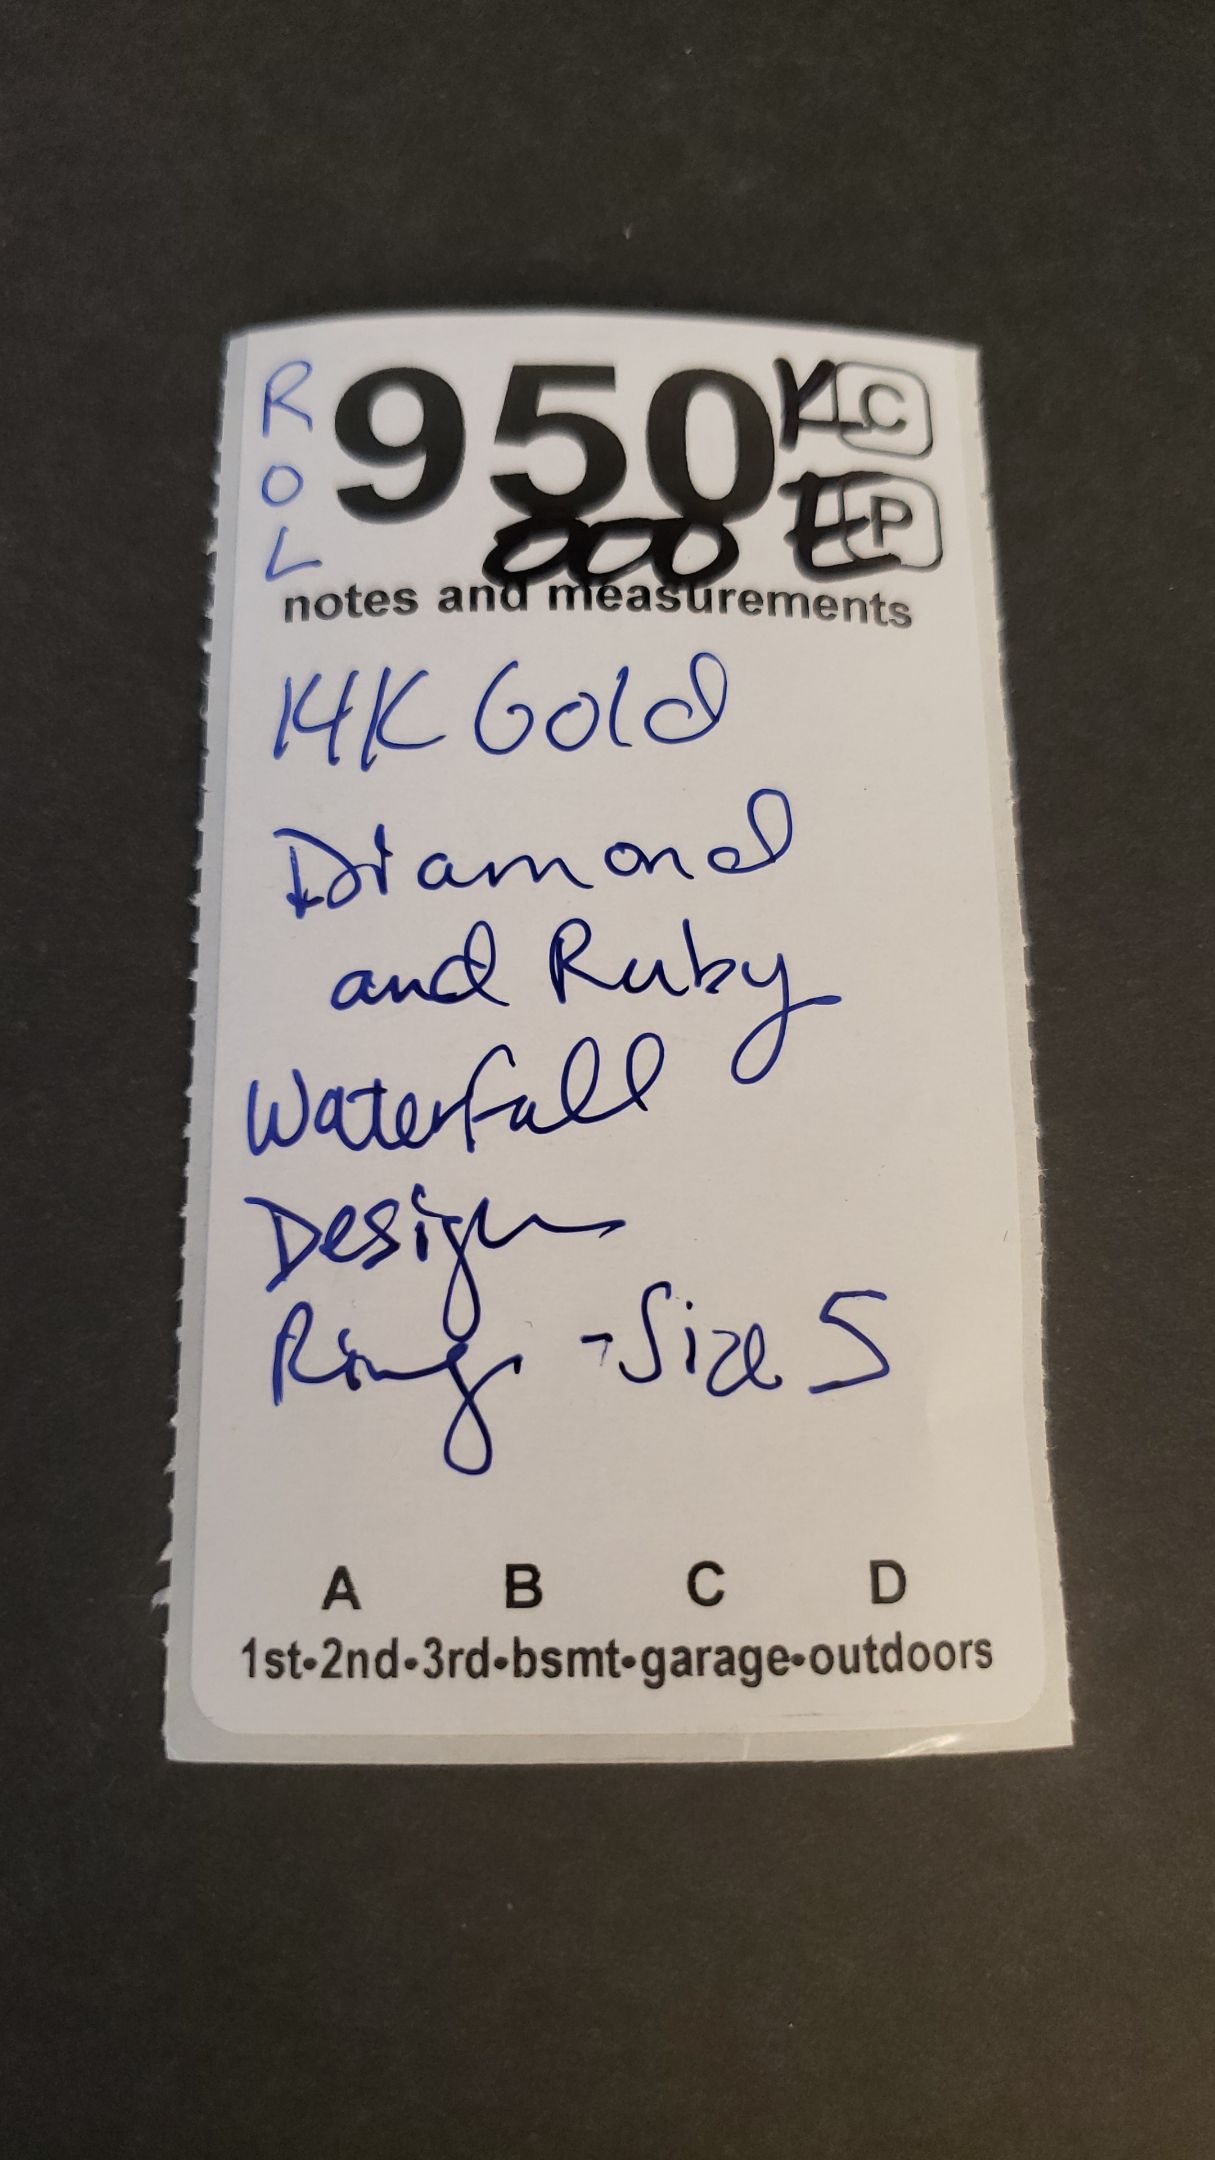 ROL
950 K C
000 E P
notes and measurements
14K Gold
Diamond
and Ruby
Waterfall
Design
Ring - Size 5
A B C D
1st•2nd•3rd•bsmt•garage•outdoors